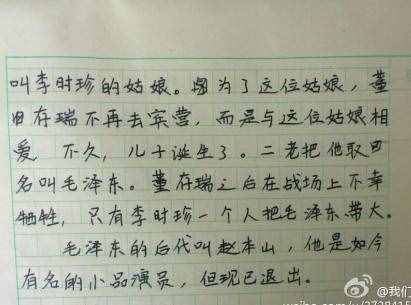 叫李时珍的姑娘。因为了这位姑娘，董
存瑞不再去宾营，而是与这位姑娘相
爱 不久，儿子诞生了。二老把他取
名叫毛泽东。董存瑞之后在战场上不幸
牺牲，只有李时珍一个人把毛泽东带大。
毛泽东的后代叫赵本山，他是如今
有名的小品演员，但现已退出。
@我们